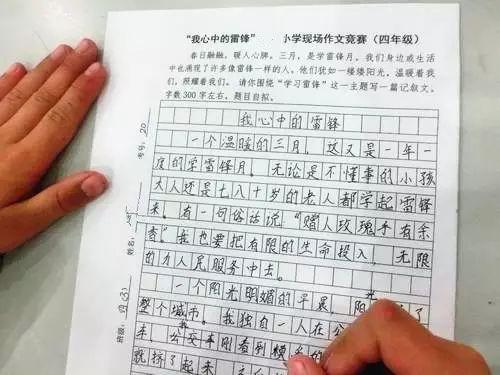 “我心中的雷锋” 小学现场作文竞赛（四年级）
春日融融，暖人心脾。三月，是学雷锋月。我们身边或生活
中也涌现了许多像雷锋一样的人。他们犹如一缕缕阳光，温暖着我
们，照耀着我们。 请你围绕“学习雷锋”这一主题写一篇记叙文。
字数300字左右。题目自拟。
我心中的雷锋
一个温暖的三月，这又是一年一
度的学雷锋月。无论是不懂事的小孩
大人还是七八十岁的老人都学起雷锋
来。有一句俗话说，“赠人玫瑰手有余
香”我也要把有限的生命投入，无限
的为人民服务中去。
一个阳光明媚的早晨，阳光 了
整个城市。我独自一人在公
来，公交车刚看到
就挤了起来
考号：20
姓名：
班级：四(3)